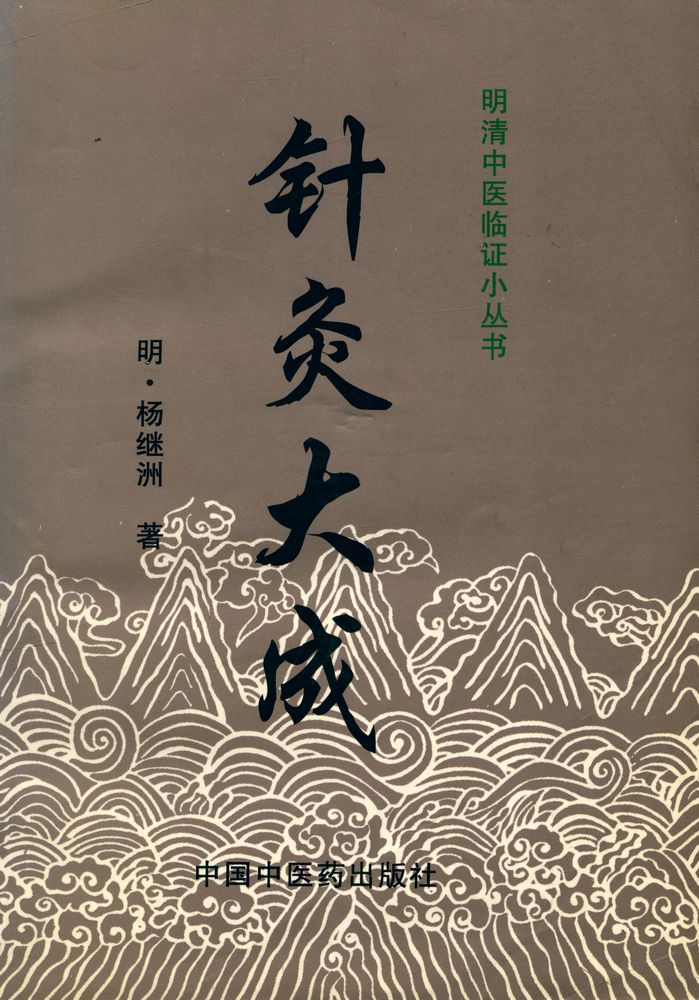 明清中医临证小丛书
针灸大成
明·杨继洲 著
中国中医药出版社